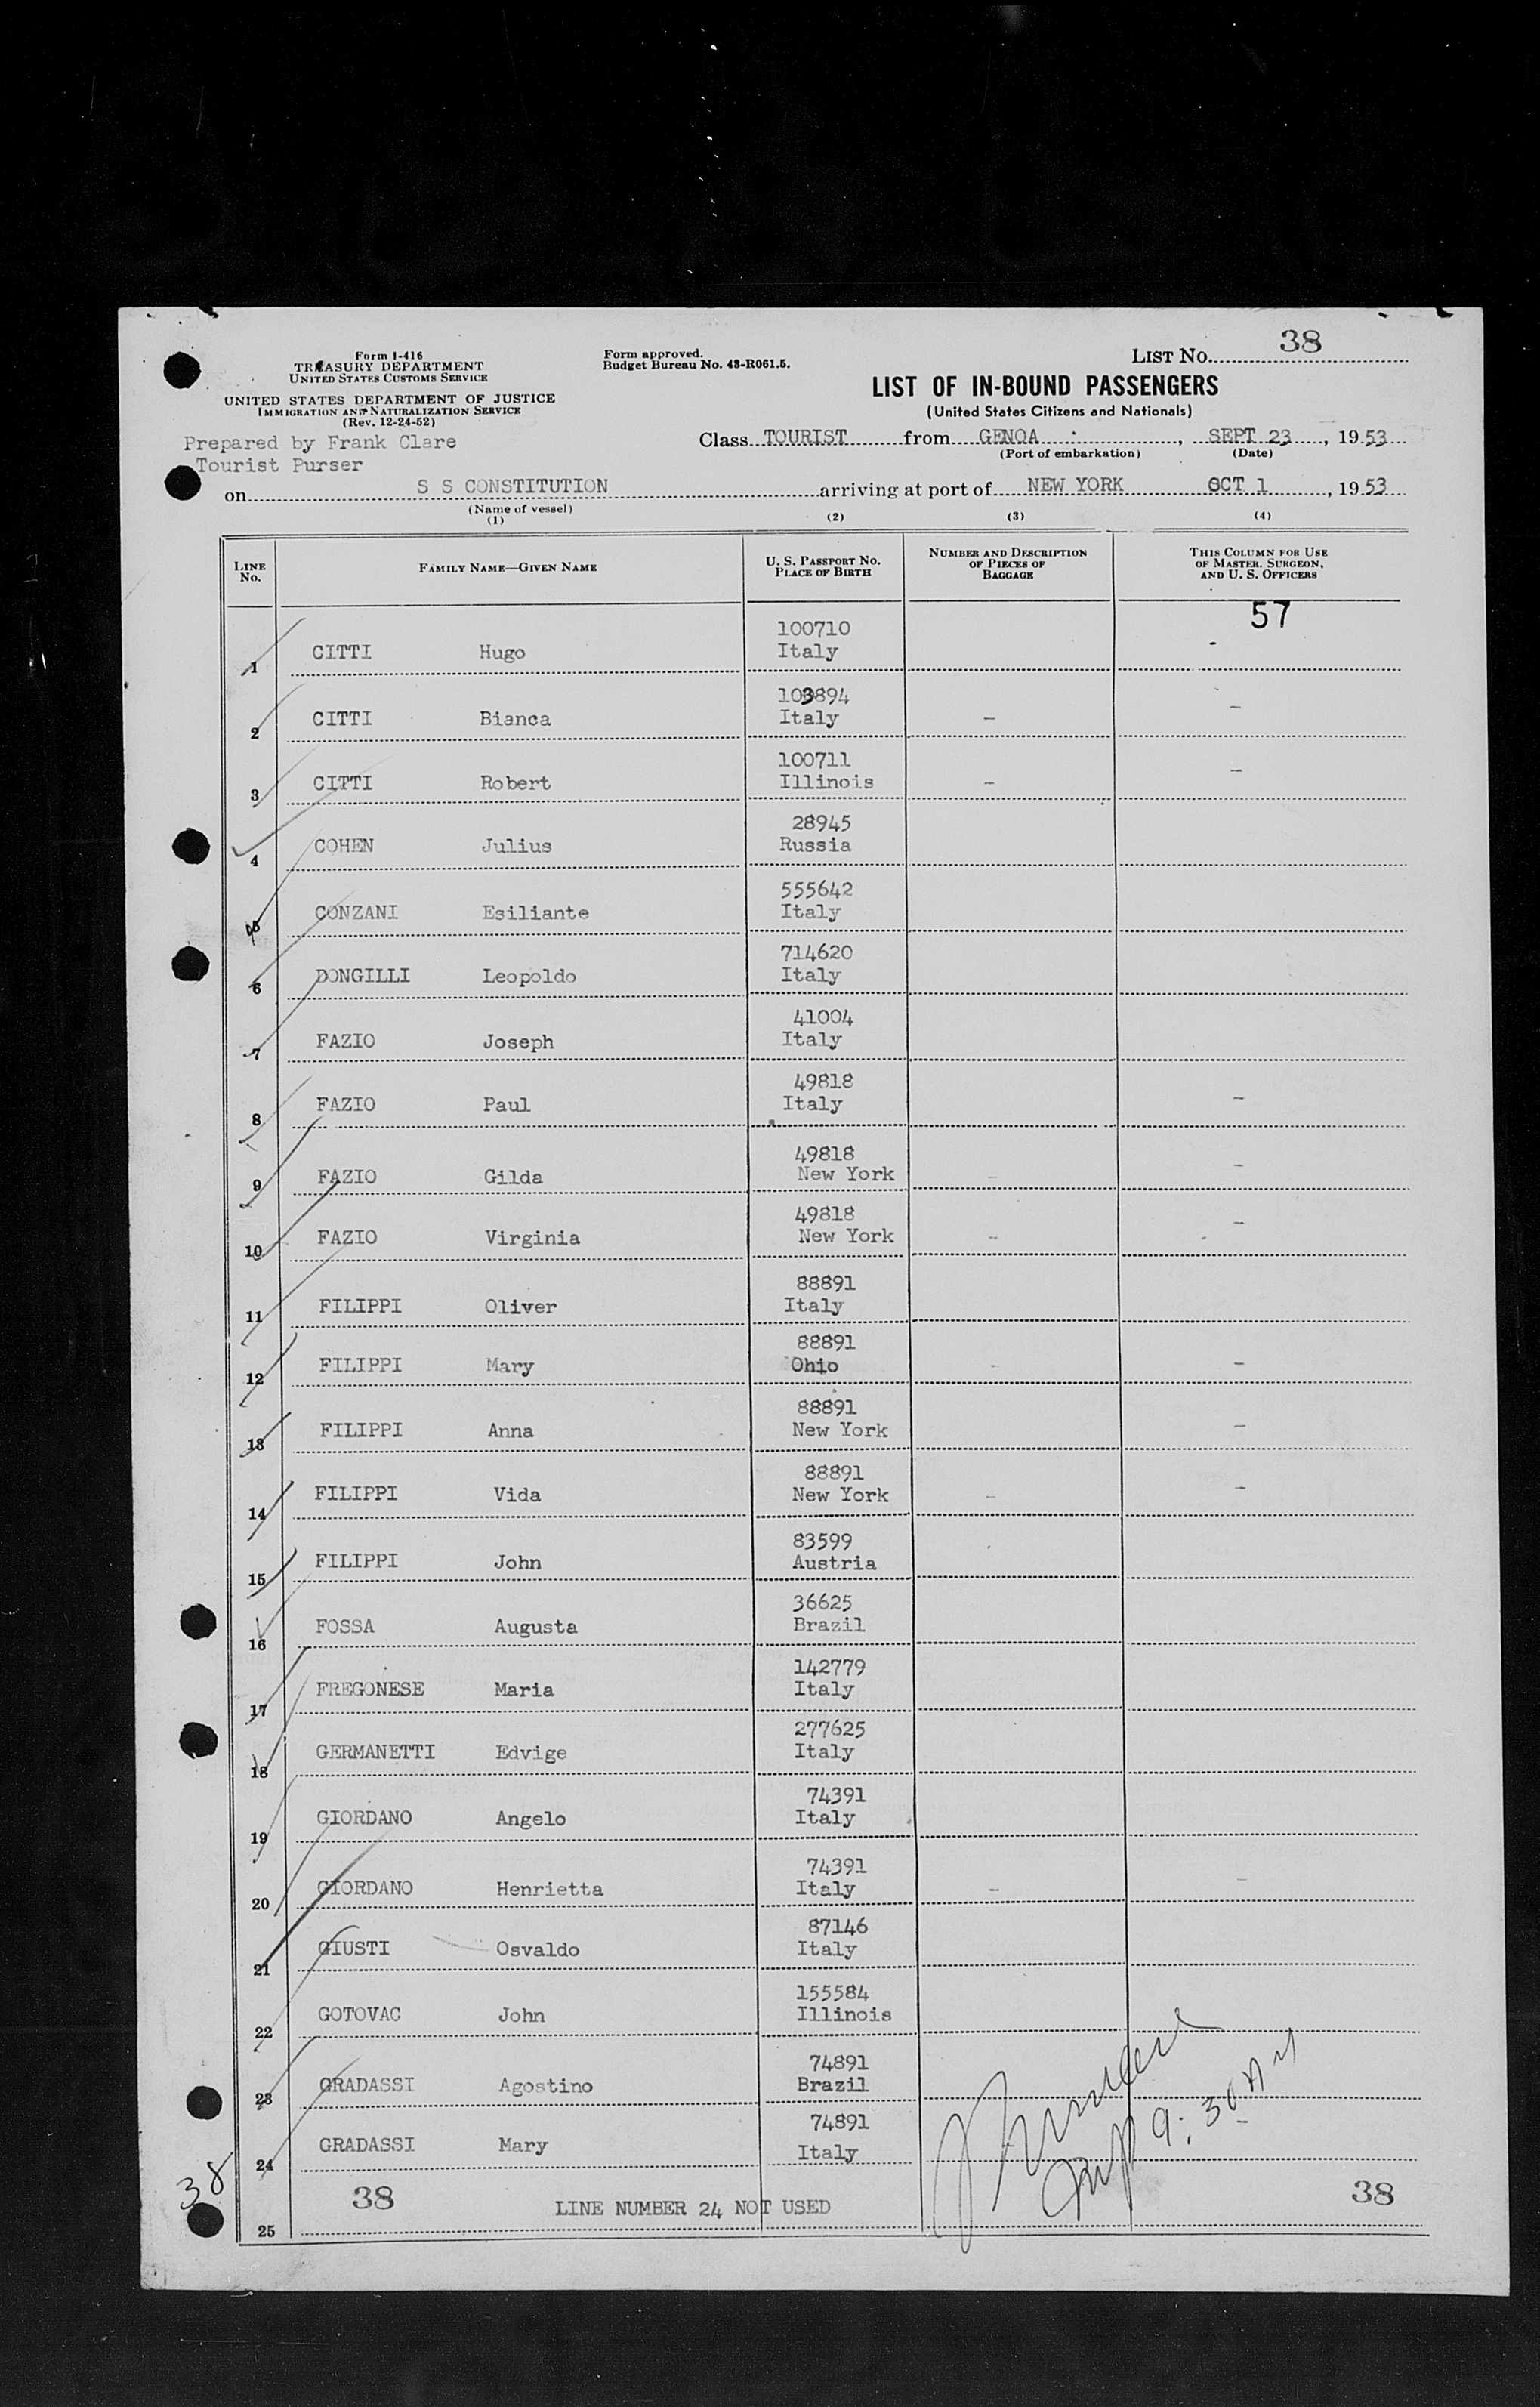 Form I-416
TREASURY DEPARTMENT
UNITED STATES CUSTOMS SERVICE
UNITED STATES DEPARTMENT OF JUSTICE
IMMIGRATION AND NATURALIZATION SERVICE
(Rev. 12-24-52)
Prepared by Frank Clare
Tourist Purser
Form approved.
Budget Bureau No. 43-R061.5.
LIST NO. 38
LIST OF IN-BOUND PASSENGERS
(United States Citizens and Nationals)
Class TOURIST from GENOA, SEPT 23, 1953
(Port of embarkation) (Date)
on S S CONSTITUTION arriving at port of NEW YORK OCT 1, 1953
(Name of vessel)
(1) (2) (3) (4)
LINE NO. FAMILY NAME—GIVEN NAME U. S. PASSPORT NO. PLACE OF BIRTH NUMBER AND DESCRIPTION OF PIECES OF BAGGAGE THIS COLUMN FOR USE OF MASTER, SURGEON, AND U. S. OFFICERS
57
100710
1 CITTI Hugo Italy
103894
2 CITTI Bianca Italy
100711
3 CITTI Robert Illinois
28945
4 COHEN Julius Russia
555642
5 CONZANI Esiliante Italy
714620
6 DONGILLI Leopoldo Italy
41004
7 FAZIO Joseph Italy
49818
8 FAZIO Paul Italy
49818
9 FAZIO Gilda New York
49818
10 FAZIO Virginia New York
88891
11 FILIPPI Oliver Italy
88891
12 FILIPPI Mary Ohio
88891
13 FILIPPI Anna New York
88891
14 FILIPPI Vida New York
83599
15 FILIPPI John Austria
36625
16 FOSSA Augusta Brazil
142779
17 FREGONESE Maria Italy
277625
18 GERMANETTI Edvige Italy
74391
19 GIORDANO Angelo Italy
74391
20 GIORDANO Henrietta Italy
87146
21 GIUSTI Osvaldo Italy
155584
22 GOTOVAC John Illinois
74891
23 GRADASSI Agostino Brazil
74891
24 GRADASSI Mary Italy
9:30 AM
38
38 LINE NUMBER 24 NOT USED 38
25